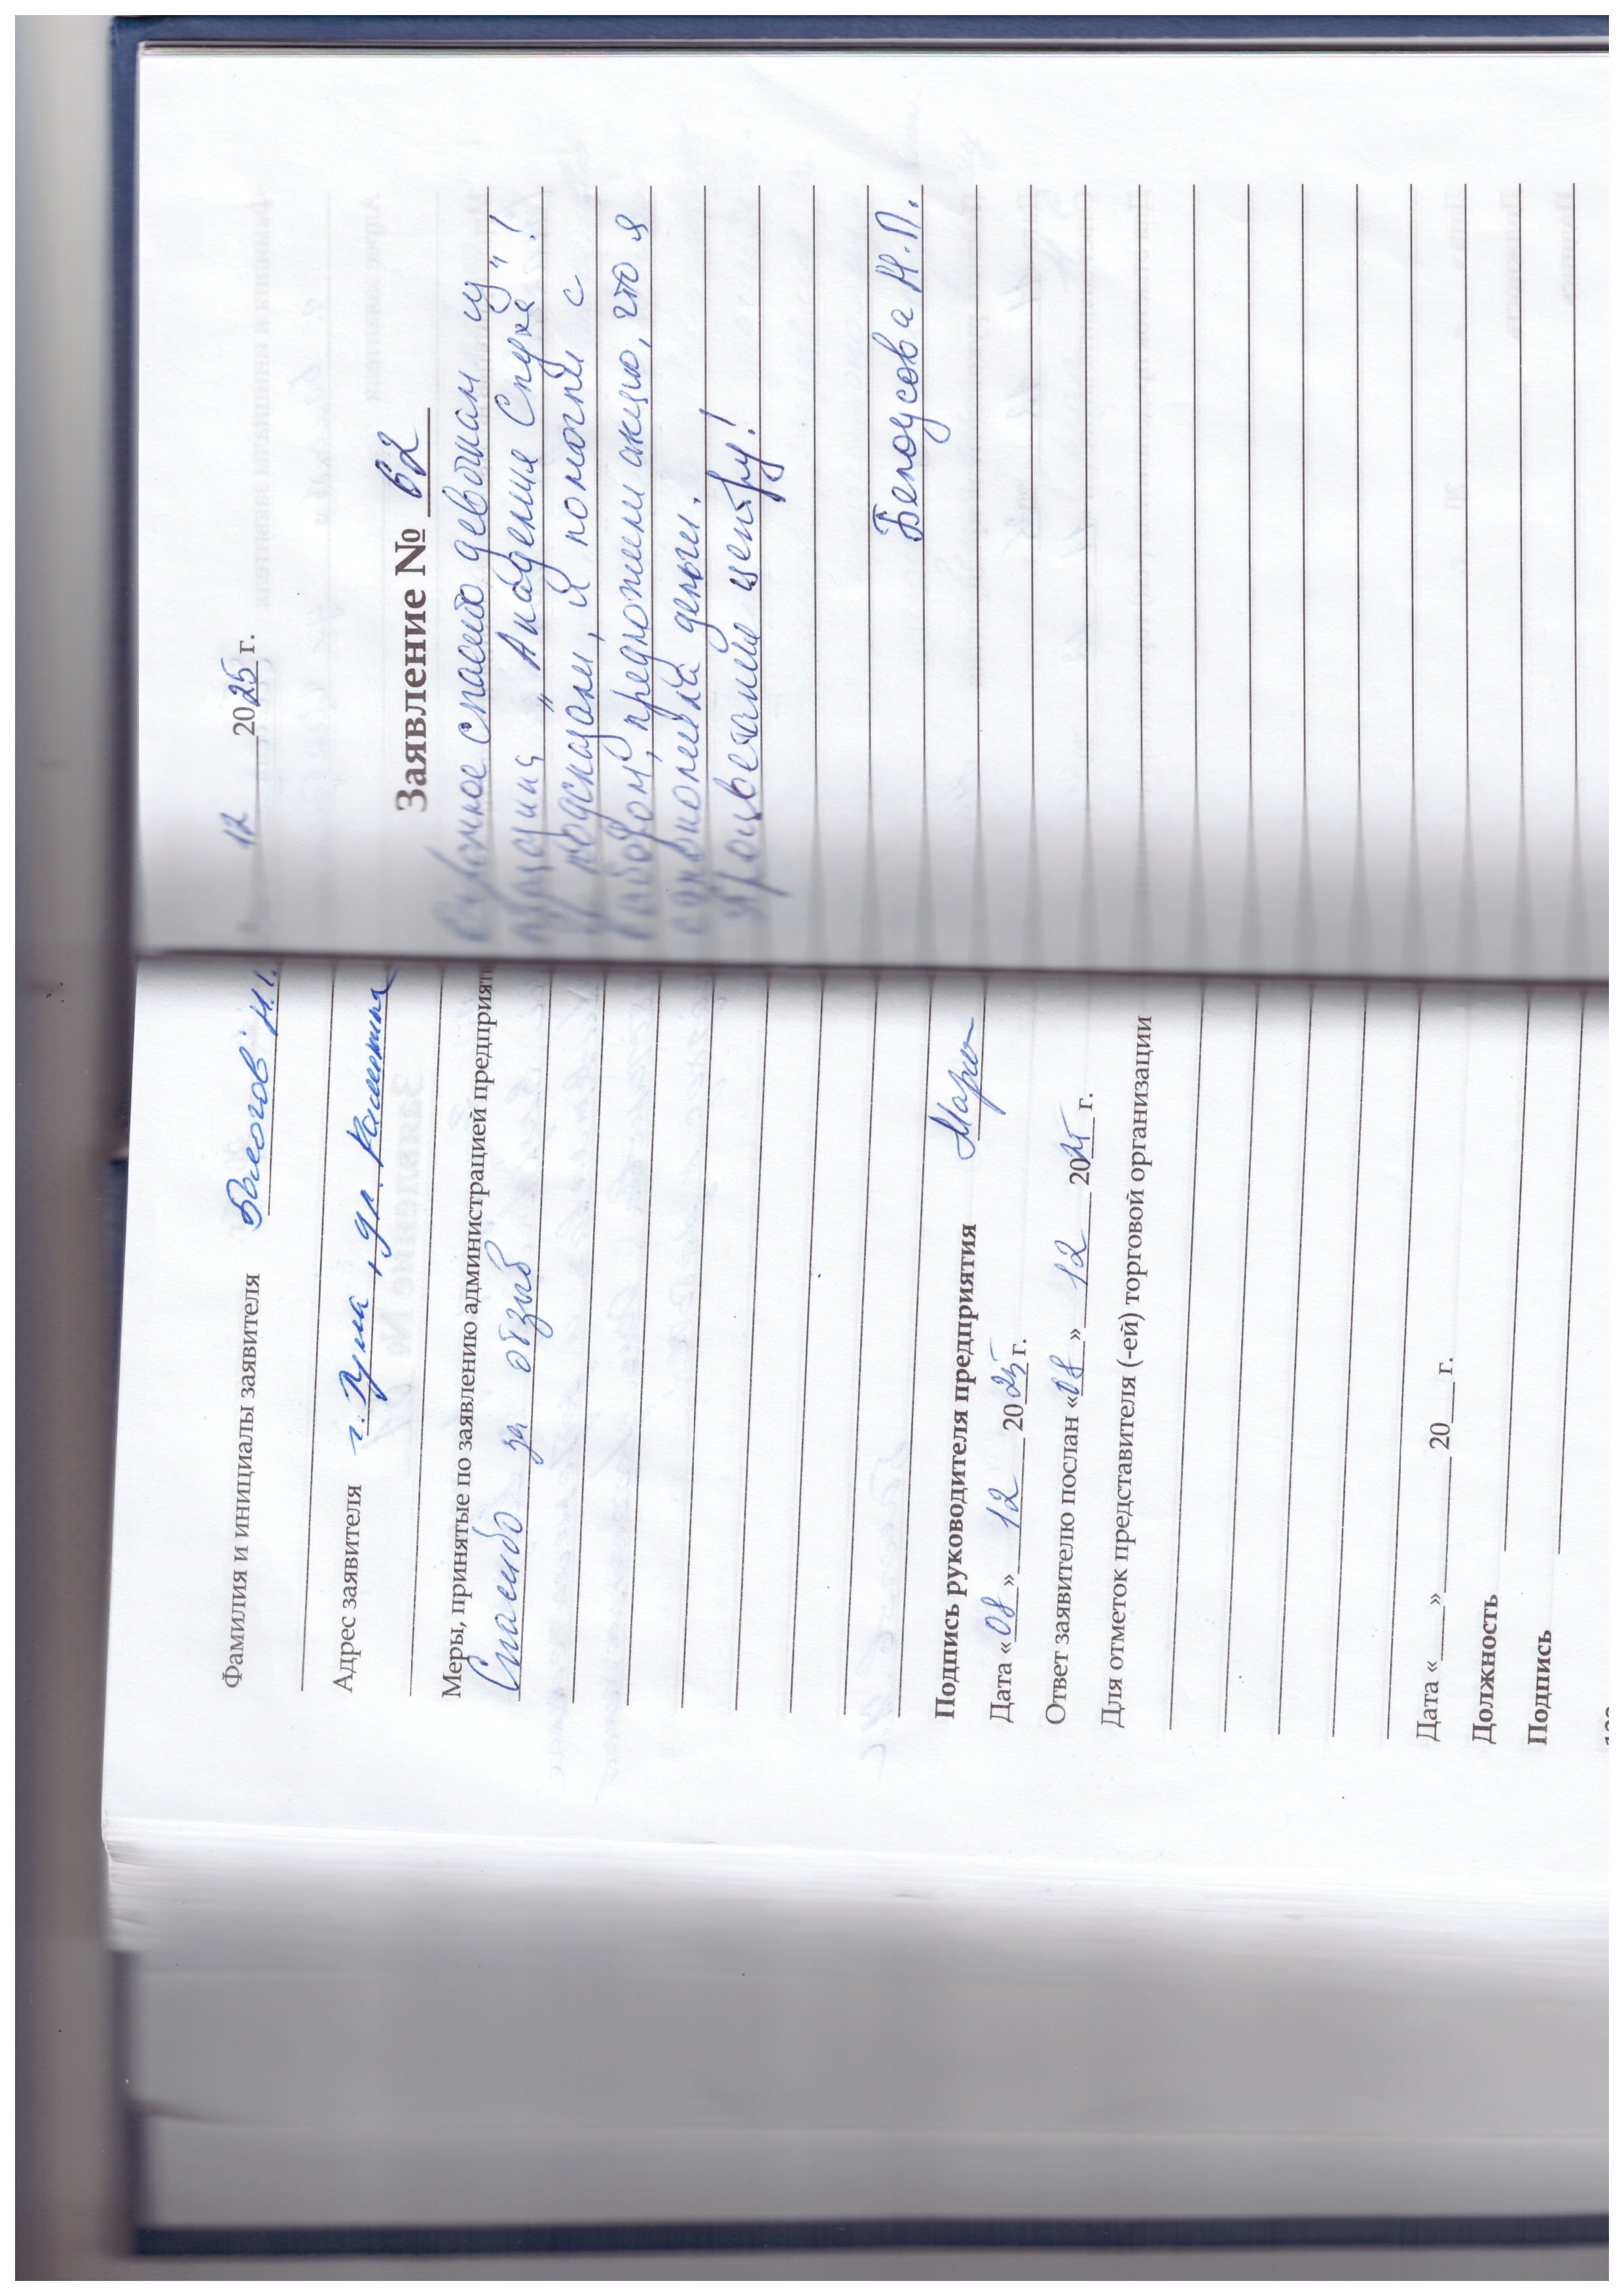 Фамилия и инициалы заявителя
Адрес заявителя г. Тула, ул.
Меры, принятые по заявлению администрацией предприят
Спасибо за отзыв
Подпись руководителя предприятия
Дата «08» 12 2025 г.
Ответ заявителю послан «08» 12 2025 г.
Для отметок представителя (-ей) торговой организации
Дата «___» ______ 20___ г.
Должность
Подпись
12 2025 г.
Заявление № 62
Огромное спасибо девочкам из
магазина „Академия Слуха"!
И подсказали, и помогли с
выбором, предложили акцию, что я
сэкономила деньги.
Процветания центру!
Белоусова Н.П.